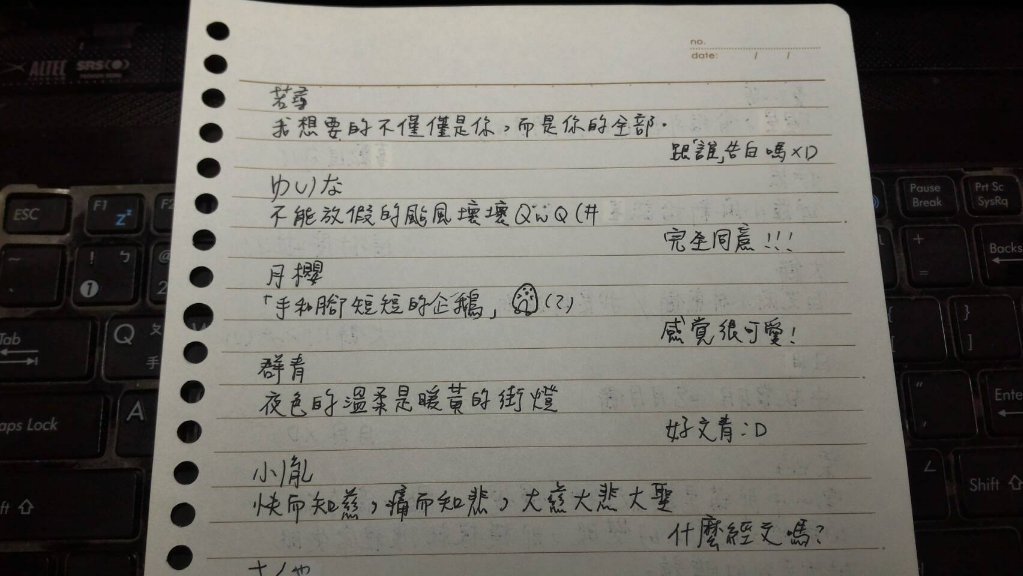 ALTEC
SRS
no.
date: / /
若尋
我想要的不僅僅是你，而是你的全部．
跟「誰」告白嗎XD
ゆいな
不能放假的颱風壞壞QwQ(#
完全同意!!!
月櫻
「手和腳短短的企鵝」(?)
感覚很可愛!
群青
夜色的溫柔是暖黃的街燈
好文青:D
小胤
快而知慈，痛而知悲，大慈大悲大聖
什麼經文嗎?
ESC
F1
F2
Pause
Break
Prt Sc
SysRq
~
!
1
ㄅ
2
+
=
Backs
Tab
Q
ㄆ
手
W
}
]
Caps Lock
A
"
Enter
Shift